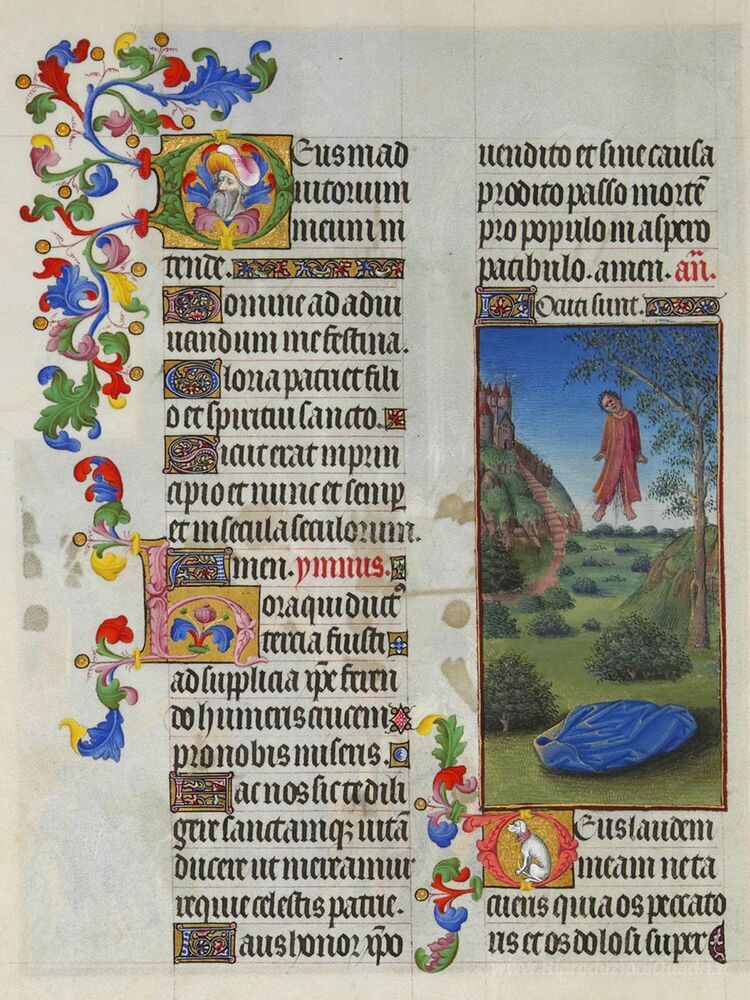 Deus in ad
iutorium
meum in
tende.
Domine ad adiu
uandum me festina.
Gloria patri et fili
o et spiritui sancto.
Sicut erat in prin
cipio et nunc et semp
et in secula seculorum.
Amen. ymnus.
Hora qui duct9
tercia fuisti
ad supplicia xp̄e feren
do humeris crucem
pro nobis miseris.
Fac nos sic te dili
gere sanctamqꝫ uitā
ducere ut mereamur
requie celestis patrie.
Laus honor xp̄o
uendito et sine causa
prodito passo mortē
pro populo in aspero
patibulo. amen. añ.
Locuti sunt.
Deus laudem
meam ne ta
cueris quia os peccato
ris et os dolosi super